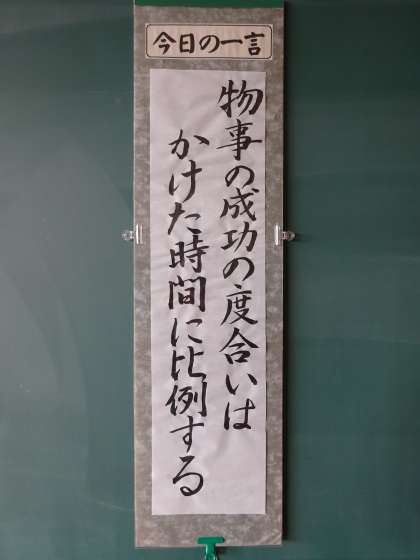 今日の一言
物事の成功の度合いは
かけた時間に比例する